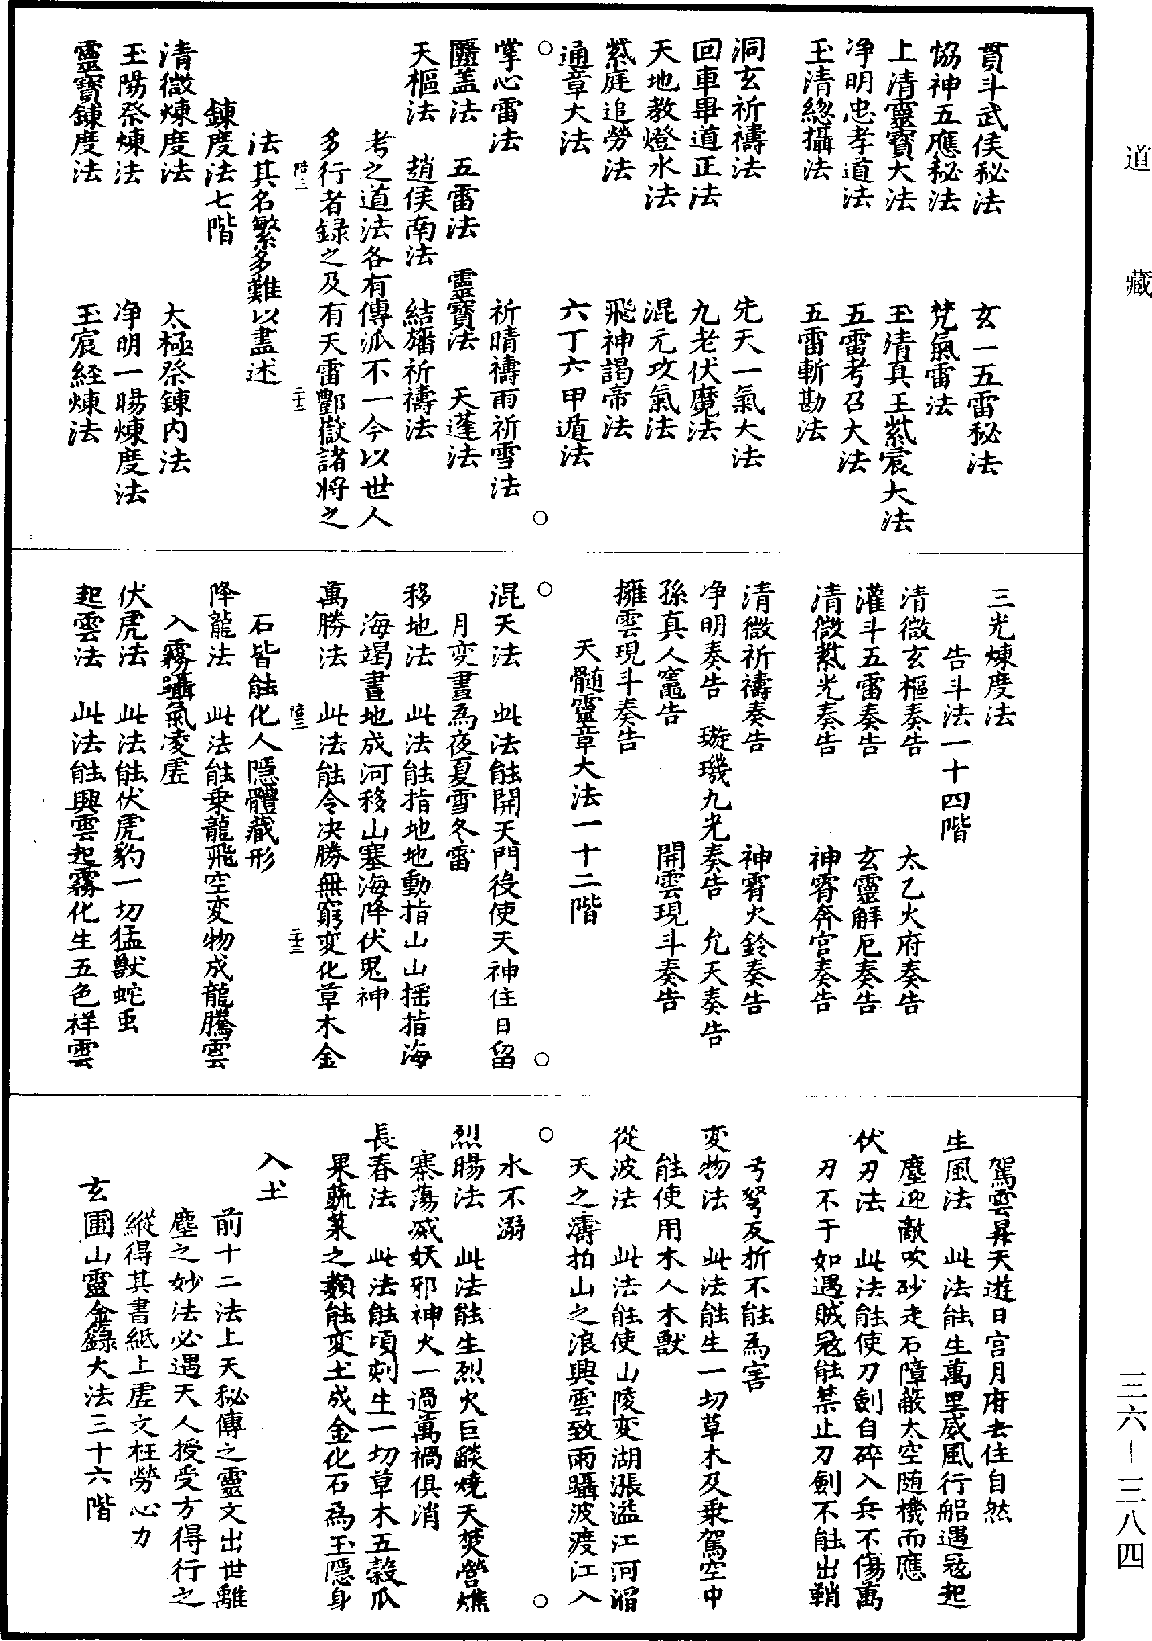 道藏
貫斗武侯秘法　玄一五雷秘法
協神五應秘法　梵氣雷法
上清靈寶大法　玉清真王紫宸大法
净明忠孝道法　五雷考召大法
玉清緫攝法　五雷斬勘法
洞玄祈禱法　先天一氣大法
回車畢道正法　九老伏魔法
天地教燈水法　混元攻氣法
紫庭追勞法　飛神謁帝法
通章大法　六丁六甲遁法
掌心雷法　祈晴禱雨祈雪法
靨盖法　五雷法　靈寶法　天蓬法
天樞法　趙侯南法　結旛祈禱法
考之道法各有傳派不一今以世人
多行者録之及有天雷酆嶽諸將之
法其名繁多難以盡述
鍊度法七階
清微煉度法　太極祭鍊内法
玉陽祭煉法　净明一暘煉度法
靈寶鍊度法　玉宸経煉法
三光煉度法
告斗法一十四階
清微玄樞奏告　太乙火府奏告
灌斗五雷奏告　玄靈解厄奏告
清微紫光奏告　神霄奔宫奏告
清微祈禱奏告　神霄火鈴奏告
净明奏告　璇璣九光奏告　允天奏告
孫真人竈告　開雲現斗奏告
擁雲現斗奏告
天髄靈章大法一十二階
混天法　此法能開天門役使天神住日留
月变晝為夜夏雪冬雷
移地法　此法能指地地動指山山摇指海
海竭畫地成河移山塞海降伏鬼神
萬勝法　此法能令决勝無窮变化草木金
石皆能化人隱體藏形
降龍法　此法能乗龍飛空变物成龍騰雲
入霧躡氣凌虚
伏虎法　此法能伏虎豹一切猛獸蛇䖝
起雲法　此法能興雲起霧化生五色祥雲
駕雲昇天遊日宫月府去住自然
生風法　此法能生萬里威風行船遇冦起
塵迎敵吹砂走石障蔽太空随機而應
伏刃法　此法能使刀劍自碎入兵不傷萬
刃不于如遇賊冦能禁止刀劍不能出鞘
弓弩反折不能為害
变物法　此法能生一切草木及乗駕空中
能使用木人木獸
從波法　此法能使山陵变湖漲溢江河滔
天之濤拍山之浪興雲致雨躡波渡江入
水不溺
烈暘法　此法能生烈火巨燄燒天焚營燋
寨蕩滅妖邪神火一過萬禍俱消
長春法　此法能頃刻生一切草木五榖瓜
果蔬菜之類能变土成金化石為玉隱身
入土
前十二法上天秘傳之靈文出世離
塵之妙法必遇天人授受方得行之
縱得其書紙上虚文枉勞心力
玄圃山靈金籙大法三十六階
三六—三八四